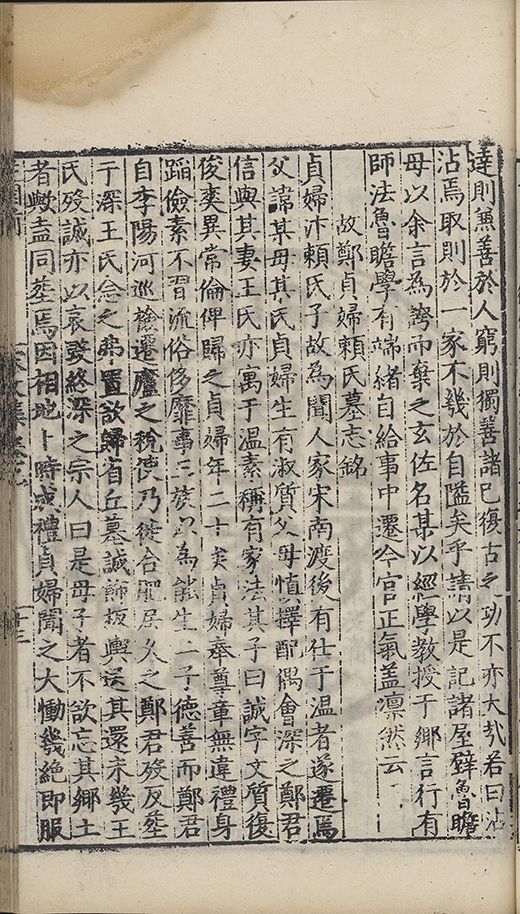 達則兼善於人窮則獨善諸已復古之功不亦大哉若曰沾
沾焉取則於一家不幾於自隘矣乎請以是記諸屋壁魯瞻
母以余言為誇而棄之玄佐名某以經學教授于鄉言行有
師法魯瞻學有端緒自給事中遷今官正氣盖凛然云
故鄭貞婦賴氏墓志銘
貞婦汴賴氏子故為聞人家宋南渡後有仕于温者遂遷焉
父諱某母某氏貞婦生有淑質父母慎擇配偶會深之鄭君
信與其妻王氏亦寓于温素稱有家法其子曰誠字文質復
俊爽異常倫俾歸之貞婦年二十矣貞婦奉尊章無違禮身
蹈儉素不習流俗侈靡事三族以為能生二子德善而鄭君
自李陽河巡檢遷廬之稅使乃徙合肥居久之鄭君歿反塟
于深王氏念之弗置欲歸省丘墓誠飾板輿送其還未幾王
氏歿誠亦以哀發終深之宗人曰是母子者不欲忘其鄉土
者歟盍同塟焉因相地卜時成禮貞婦聞之大慟幾絕即服